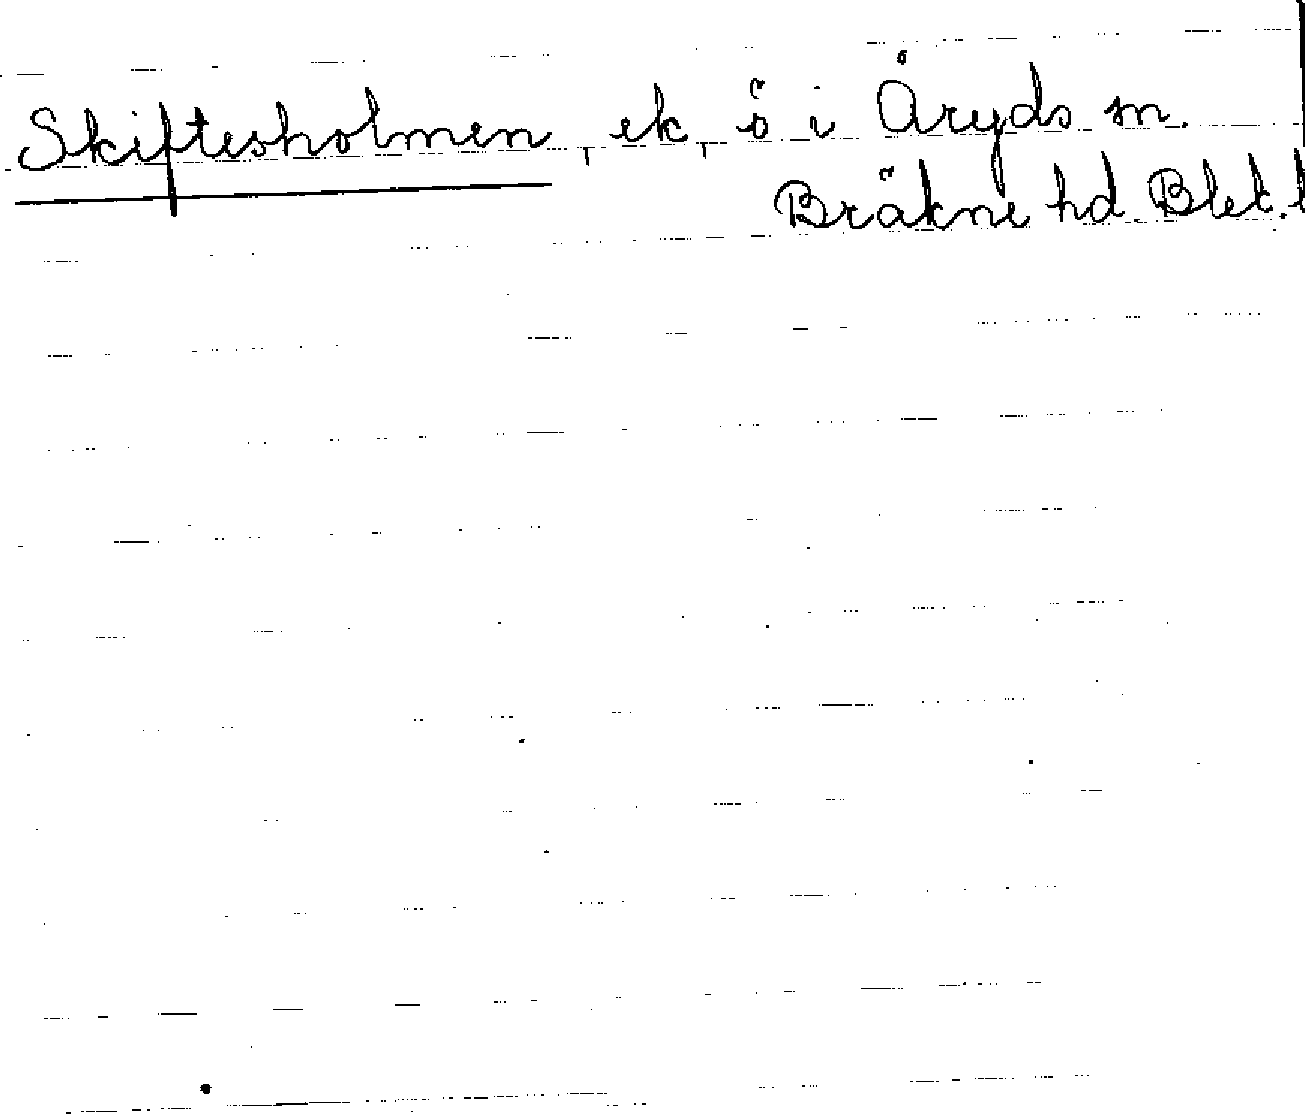 Skiftesholmen, ek, ö i Åryds sn.
Bräkne hd. Blek. l